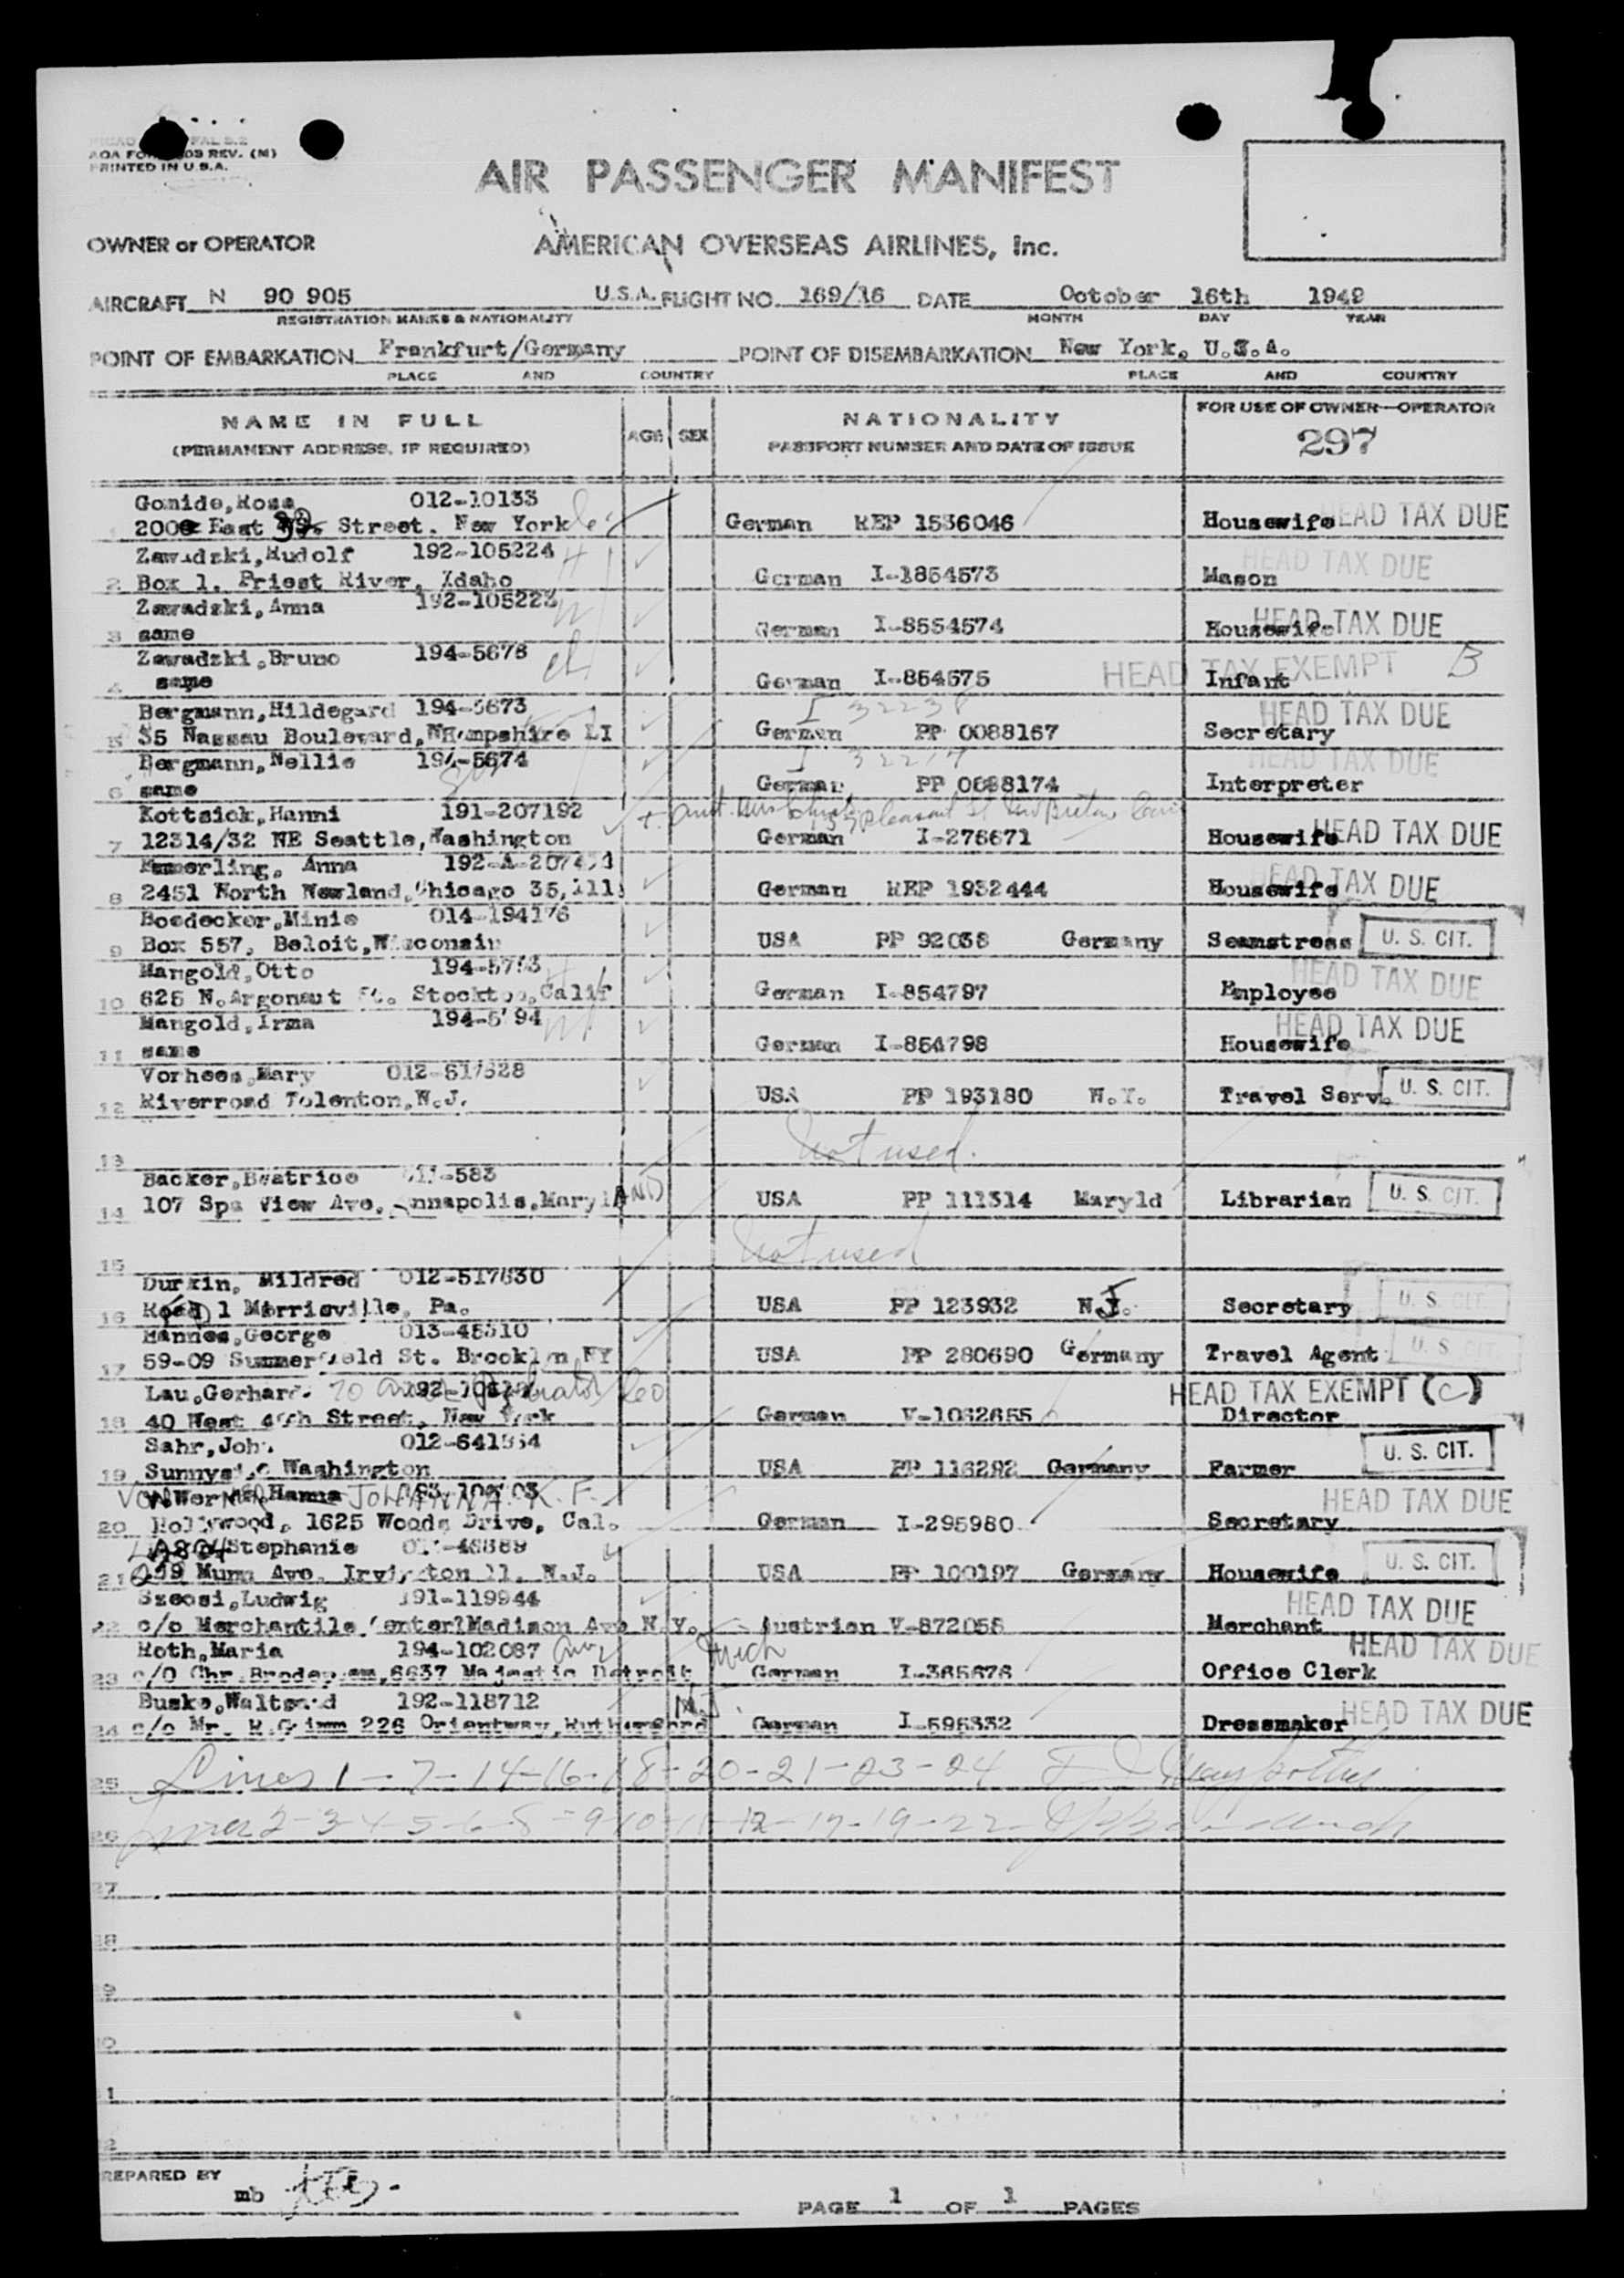 AOA FO 03 REV. (M)
PRINTED IN U.S.A.
AIR PASSENGER MANIFEST
OWNER or OPERATOR AMERICAN OVERSEAS AIRLINES, Inc.
AIRCRAFT N 90 905 U.S.A. FLIGHT NO. 169/16 DATE October 16th 1949
REGISTRATION MARKS & NATIONALITY MONTH DAY YEAR
POINT OF EMBARKATION Frankfurt/Germany POINT OF DISEMBARKATION New York, U.S.A.
PLACE AND COUNTRY PLACE AND COUNTRY
NAME IN FULL AGE SEX NATIONALITY FOR USE OF OWNER—OPERATOR
(PERMANENT ADDRESS, IF REQUIRED) PASSPORT NUMBER AND DATE OF ISSUE 297
Gomide,Rosa 012-10133
East Street. New York German REP 1536046 Housewife HEAD TAX DUE
Zawadzki,Rudolf 192-105224 HEAD TAX DUE
2 Box 1. Priest River, Idaho German I-1854573 Mason
Zawadzki,Anna 192-105223
3 same German I-8554574 Housewife HEAD TAX DUE
Zawadzki,Bruno 194-5678 HEAD TAX EXEMPT B
4 same German I-854575 Infant
Bergmann,Hildegard 194-5673 I 32238 HEAD TAX DUE
5 35 Nassau Boulevard, German PP 0088167 Secretary
Bergmann,Nellie 194-5674 I 32217 HEAD TAX DUE
6 same German PP 0088174 Interpreter
Kottsick,Hanni 191-207192
7 12314/32 NE Seattle,Washington German I-276671 Housewife HEAD TAX DUE
Anna
8 2451 North Newland,Chicago 35,Ill. German REP 1932444 Housewife HEAD TAX DUE
Boedecker,Minie 014-194176
9 Box 557, Beloit,Wisconsin USA PP 92038 Germany Seamstress U. S. CIT.
Mangold,Otto HEAD TAX DUE
10 625 N.Argonaut St. Stockton,Calif German I-854797 Employee
Mangold,Irma HEAD TAX DUE
11 same German I-854798 Housewife
Vorhees,Mary
12 Riverroad Tolenton,N.J. USA PP 193180 N.Y. Travel Serv. U. S. CIT.
13 Not used.
Backer,Beatrice
14 107 Spa View Ave. Annapolis,MarylAND USA PP 111314 Maryld Librarian U. S. CIT.
15 Not used
Durkin, Mildred 012-517630
16 1 Morrisville, Pa. USA PP 123932 N.J. Secretary U. S. CIT.
Hannes,George 013-45310
17 59-09 Summerfield St. Brooklyn NY USA PP 280690 Germany Travel Agent U. S. CIT.
Lau,Gerhard HEAD TAX EXEMPT (C)
18 40 West Street, New York German V-1032655 Director
Sahr,John
19 Sunnyside Washington USA PP 116292 Germany Farmer U. S. CIT.
JOHANNA. K. F. HEAD TAX DUE
20 Hollywood, 1625 Woods Drive, Cal. German I-295980 Secretary
Stephanie
21 Ave. Irvington 11. N.J. USA PP 100197 Germany Housewife U. S. CIT.
Szecsi,Ludwig 191-119944 HEAD TAX DUE
22 c/o Merchantile Center Madison Ave N.Y. Austrian V-872058 Merchant
Roth,Maria 194-102087 Mich HEAD TAX DUE
23 c/o Chr. 6637 Majestic Detroit German I-365678 Office Clerk
Buske,Waltraud 192-118712 N.J.
24 c/o Mr. R.Grimm 226 Orientway,Rutherford German I-595332 Dressmaker HEAD TAX DUE
25 Lines 1-7-14-16-18-20-21-23-24
26 2-3-4-5-6-8-9-10-11-12-17-19-22
PREPARED BY
mb
PAGE 1 OF 1 PAGES